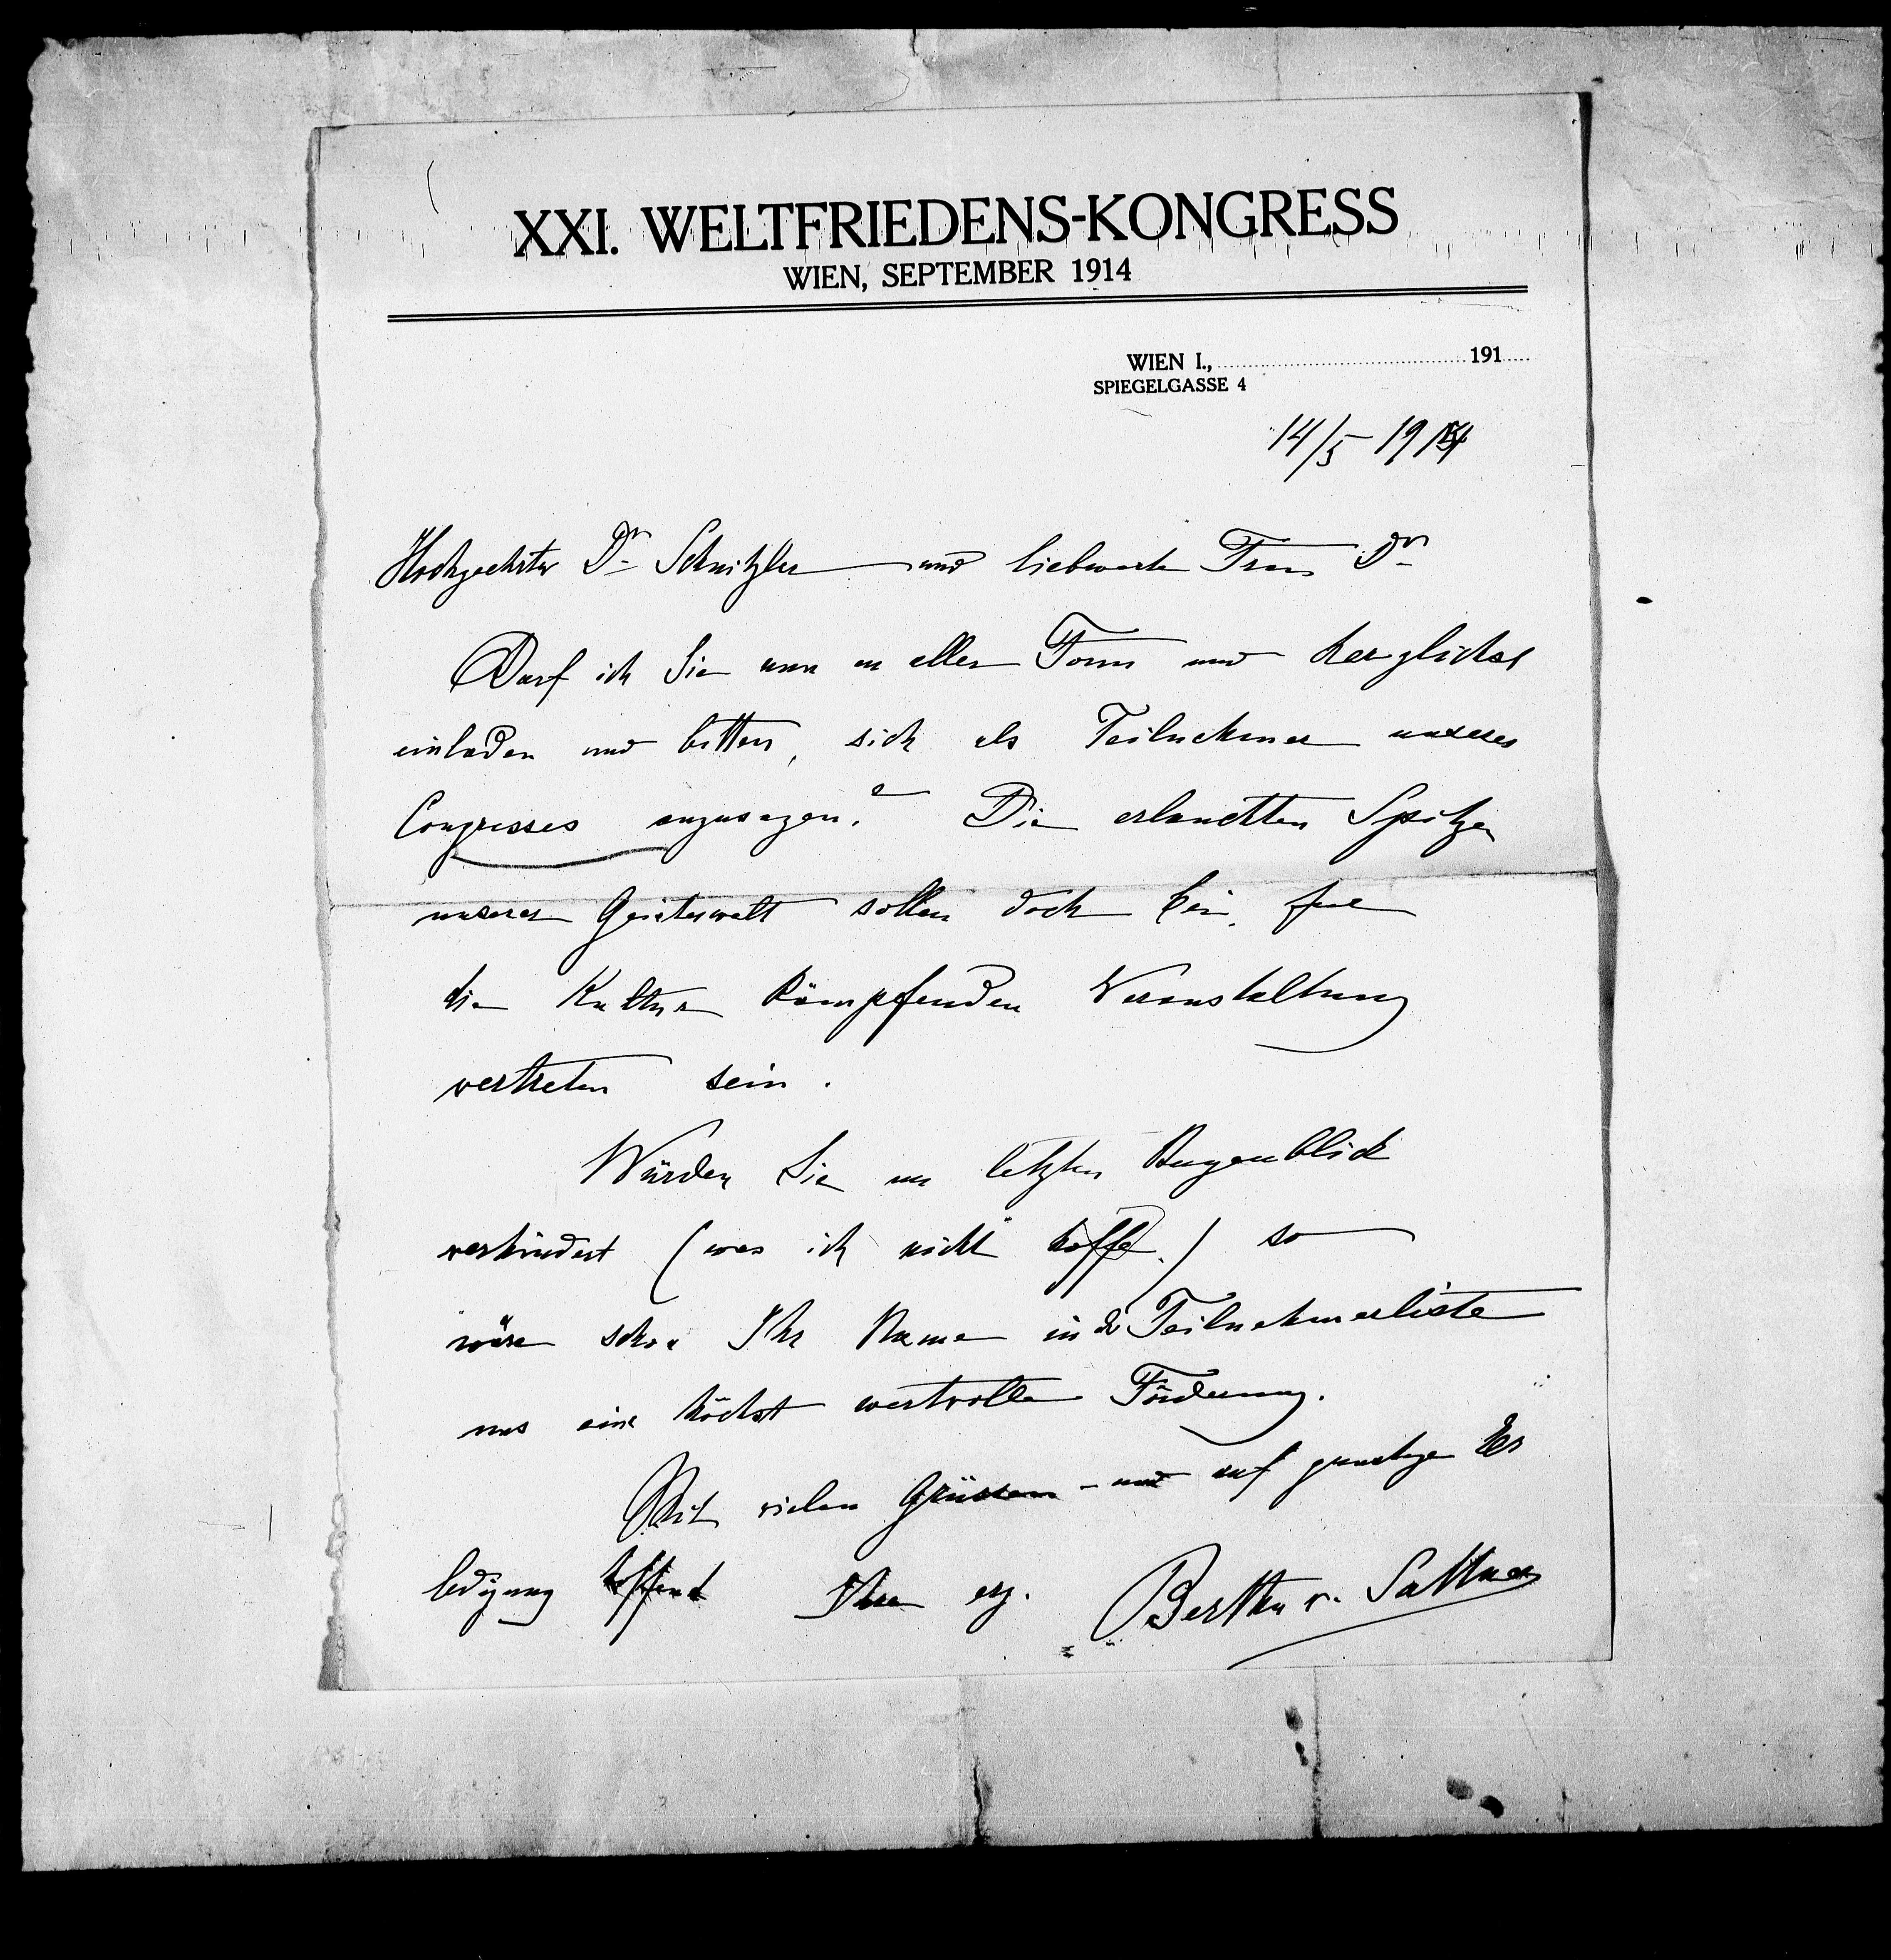 XXI. WELTFRIEDENS-KONGRESS
WIEN, SEPTEMBER 1914
WIEN I., 191
SPIEGELGASSE 4
14/5 1914
Hochgeehrter Dr Schnitzler und liebwerte Frau Dr
Darf ich Sie nun in aller Form und herzlichst
einladen und bitten, sich als Teilnehmer unseres
Congresses anzusagen? Die erlauchten Spitzen
unserer Geisteswelt sollen doch bei, fur
die Kultur kämpfenden Veranstaltung
vertreten sein.
Würden Sie im letzten Augenblick
verhindert (was ich nicht hoffe) so
wäre schon Ihr Name in der Teilnehmerliste
uns eine höchst wertvolle Förderung.
Mit vielen Grüssen – und auf gunstige Er
ledigung hoffend Ihre erg. Bertha v. Suttner